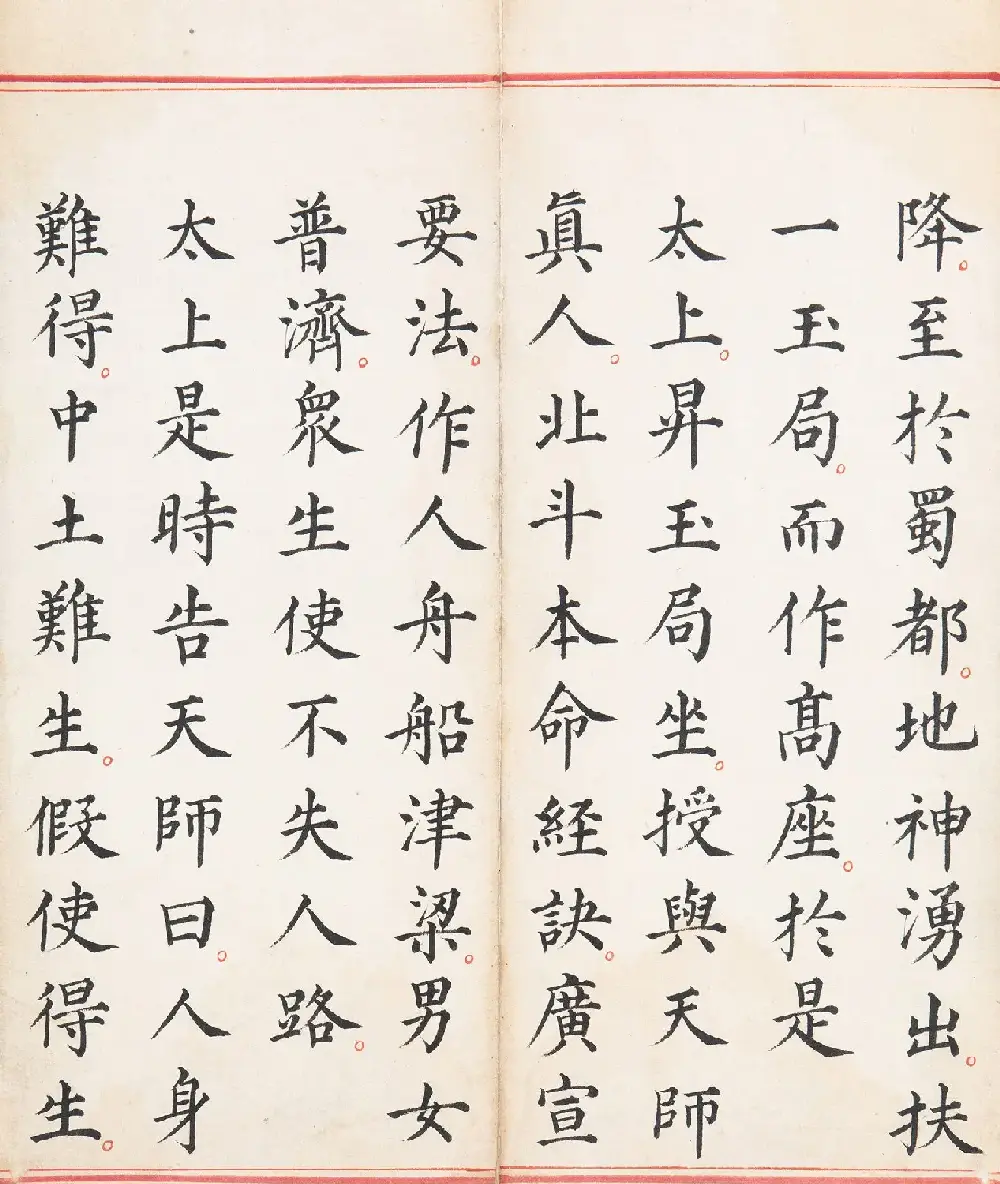 降。至於蜀都。地神湧出。扶
一玉局。而作髙座。於是
太上。昇玉局坐。授與天師
眞人。北斗本命経訣。廣宣
要法。作人舟船津梁。男女
普濟。衆生使不失人路。
太上是時告天師曰。人身
難得。中土難生。假使得生。